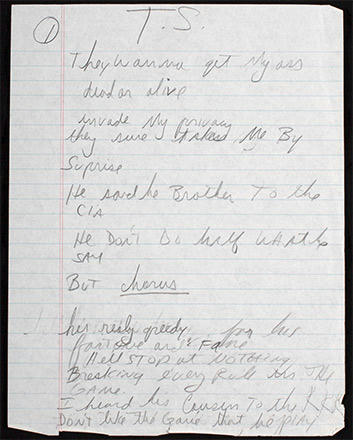 1
T.S.
They wanna get my ass
dead or alive
invade My privacy
they sure takes Me By
Suprise
He said he Brother To the
CIA
He Don't Do half What he
SAY
But chorus
his really greedy for his
fortune and Fame
Hell STOP at NOTHING
Breaking every Rule in The
GAME
I heard his Cousin To the KKK
Don't like the Game that he PLAY